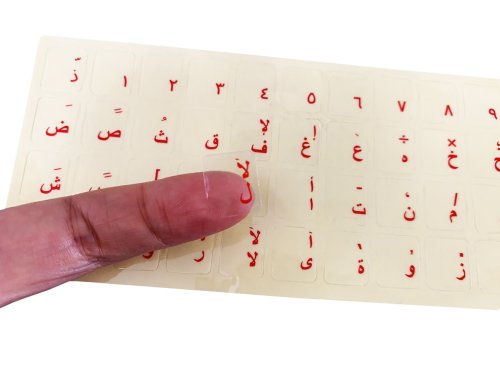 ذّ ١ ٢ ٣ ٤ ٥ ٦ ٧ ٨ ٩
ضَ صً ثُ ق ف لإ غ إ ع ه ÷ خ ×
شَ ل لأ ا أ ت ن م
ر لا لآ ى ة و ز